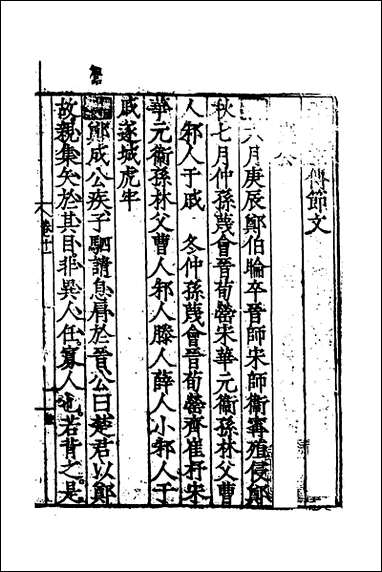 傳節文
公
六月庚辰鄭伯睔卒晉師宋師衛甯殖侵鄭
秋七月仲孫蔑會晉荀罃宋華元衛孫林父曹
人邾人于戚 冬仲孫蔑會晉荀罃齊崔杼宋
華元衛孫林父曹人邾人滕人薛人小邾人于
戚遂城虎牢
鄭成公疾子駟請息肩於晉公曰楚君以鄭
故親集矢於其目非異人任寡人也若背之是
卷十一